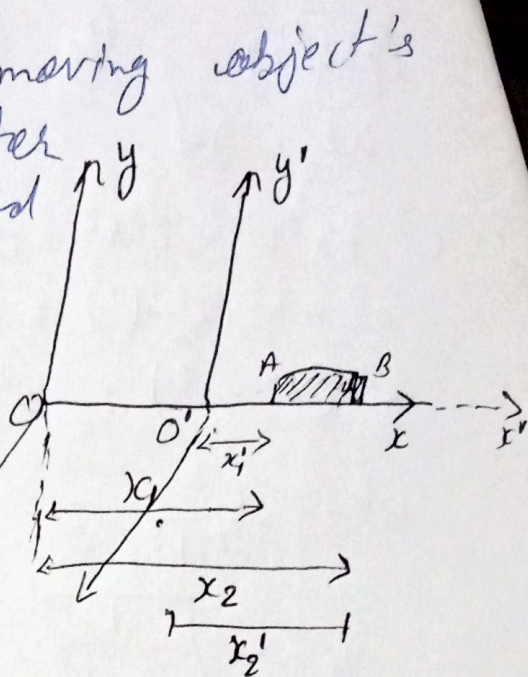 moving object's
y y'
A B
O O' x x'
x₁'
x₁
x₂
x₂'